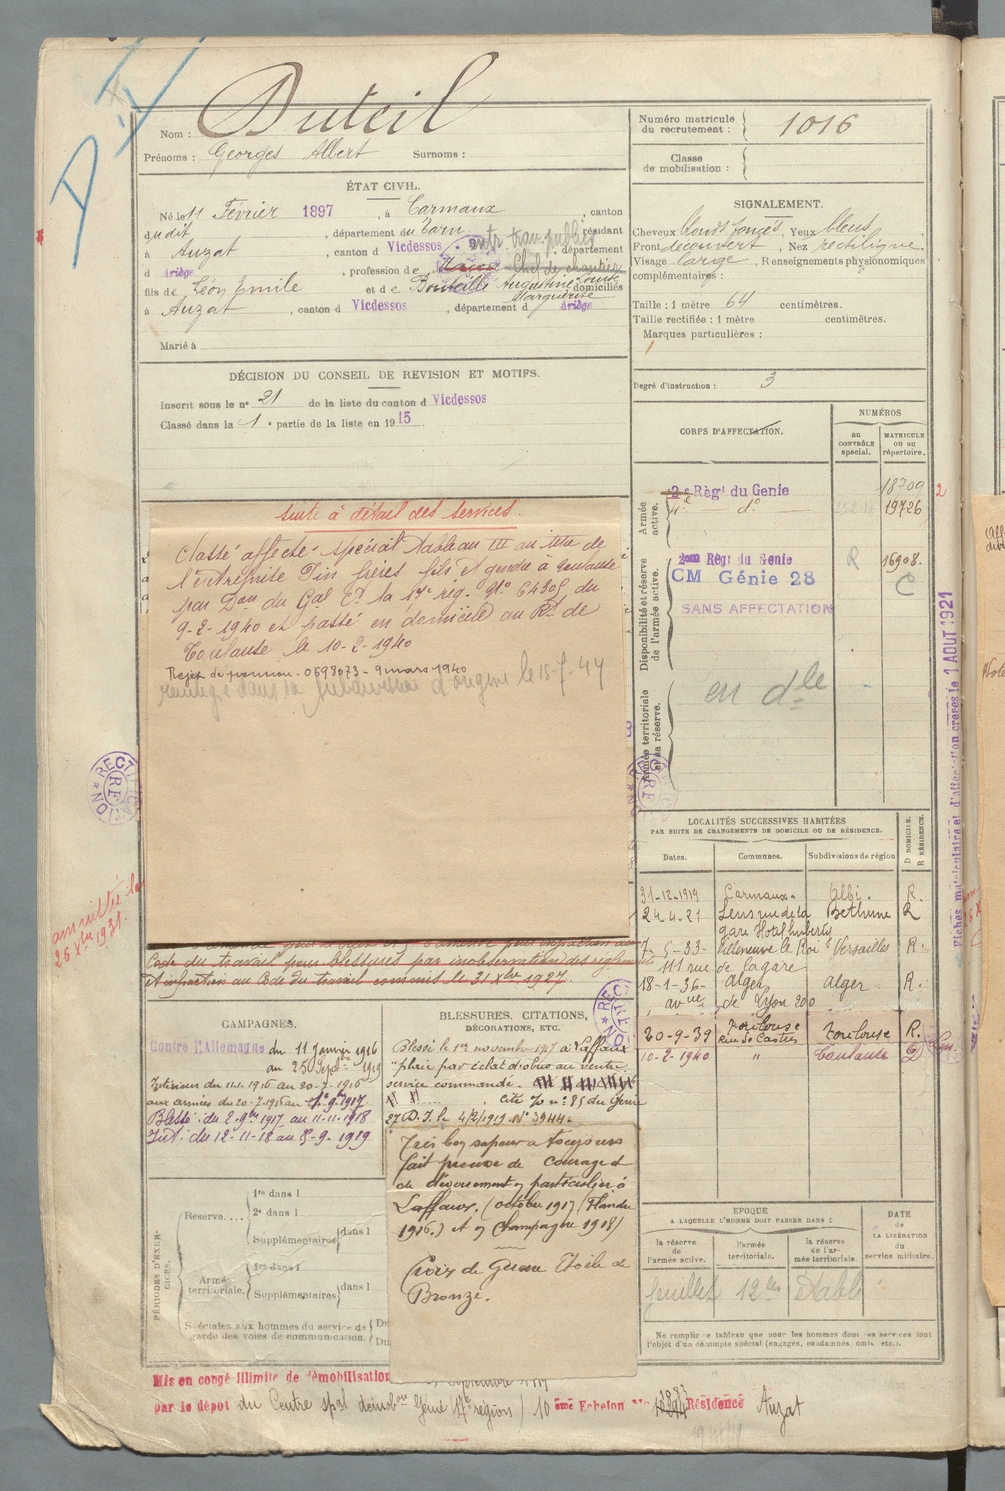 Nom : Duteil
Prénoms : Georges Albert Surnoms :
Numéro matricule du recrutement : 1016
Classe de mobilisation :
ÉTAT CIVIL.
Né le 11 Février 1897, à Carmaux, canton
dudit, département du Tarn, résidant
à Auzat, canton d Vicdessos, département
d Ariège, profession de entr. trav. publics Chef de chantier
fils de Léon Emile et de Bouteillé Augustine Louise Marguerite domiciliés
à Auzat, canton d Vicdessos, département d Ariège
Marié à
SIGNALEMENT.
Cheveux blonds foncés, Yeux bleus
Front découvert, Nez rectiligne
Visage large, Renseignements physionomiques
complémentaires :
Taille : 1 mètre 64 centimètres.
Taille rectifiée : 1 mètre centimètres.
Marques particulières :
Degré d'instruction : 3
DÉCISION DU CONSEIL DE REVISION ET MOTIFS.
Inscrit sous le n° 21 de la liste du canton d Vicdessos
Classé dans la 1e partie de la liste en 1915.
CORPS D'AFFECTATION.
NUMÉROS
AU CONTRÔLE spécial.
MATRICULE OU AU répertoire.
Armée active.
2e Règt du Genie 18709
4e — d° 19726
Disponibilité et réserve de l'armée active.
2eme Règt du Genie R 16908.
CM Génie 28 C
SANS AFFECTATION
Armée territoriale et sa réserve.
en dle
suite à détail des services.
Classé affecté spécial tableau III au titre de
l'entreprise Pin frères fils et gendre à Toulouse
par Don du Gal Ct la 17e rég. N° 6430S du
9-2-1940 et passé en domicile au Rt de
Toulouse le 10-2-1940
Rejet de pension - 0698073 - 9 mars 1940
dans la subdivision d'origine le 15-7-44
annitiée du
26 Xbre 1931.
Code du travail pour blessures par inobservation des règlements
et infraction au Code du travail commis le 31 Xbre 1927.
Fiches matriculaire et d'affectation créées le 1 AOUT 1921
LOCALITÉS SUCCESSIVES HABITÉES
PAR SUITE DE CHANGEMENTS DE DOMICILE OU DE RÉSIDENCE.
Dates. Communes. Subdivisions de région D DOMICILE. R RÉSIDENCE.
31-12-1919 Carmaux. Albi. R.
24-4-21 Lens rue de la gare Hotel Huberty Bethune R
7-5-33- Villeneuve le Roi Versailles R.
111 rue de la gare
18-1-36- Alger Alger R.
avue de Lyon 200
20-9-39 Toulouse Toulouse R.
rue St Castres
10-2-1940 " Toulouse D
CAMPAGNES.
Contre l'Allemagne du 11 Janvier 1916
au 25 Septbre 1919
Intérieur du 11-1-1916 au 20-7-1916
aux armées du 20-7-1916 au 1er 9bre 1917
Blessé : du 2-9bre 1917 au 11-11-1918
Int. du 12-11-18 au 5-9-1919
BLESSURES, CITATIONS,
DÉCORATIONS, ETC.
Blessé le 1er novembre 1917 à Laffaux
"plaie par éclat d'obus au ventre"
service commandé.
Cité Jo n° 85 du Génie
27 D.I. le 4/2/1919 N° 3944.
Très bon sapeur a toujours
fait preuve de courage et
de dévouement en particulier à
Laffaux. (octobre 1917 (Flandre
1916.) et en Champagne 1918)
Croix de Guerre Etoile de
Bronze.
PÉRIODES D'EXERCICES.
Réserve....
1re dans l
2e dans l
Supplémentaires dans l
Armée territoriale.
1re dans l
Supplémentaires dans l
Spéciales aux hommes du service de garde des voies de communication. Du
EPOQUE
A LAQUELLE L'HOMME DOIT PASSER DANS :
DATE de LA LIBÉRATION du service militaire.
la réserve de l'armée active.
l'armée territoriale.
la réserve de l'armée territoriale.
Ne remplir ce tableau que pour les hommes dont les services font
l'objet d'un décompte spécial (engagés, condamnés, omis, etc.).
Mis en congé illimité de démobilisation
par le dépot du Centre spal démobon Génie (17e région) 10 ème Echelon N° Résidence Auzat